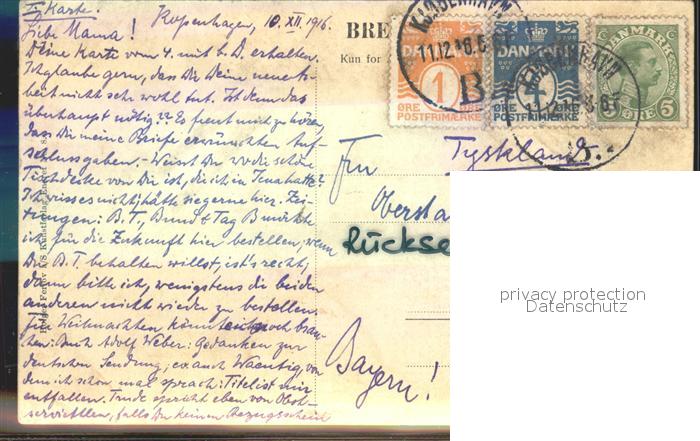 I. Karte. Kopenhagen, 10. XII. 1916.
Liebe Mama!
Deine Karte vom 4. mit b. D. erhalten.
Ich glaube gern, dass Dir Deine neue
nicht sehr wohl tut. Ist denn das
überhaupt nötig?? Es freut mich zu hören,
dass Dir meine Briefe erwünschten Auf-
schluss gaben. Weisst Du wo die schöne
Tischdecke von Dir ist, die ich in Jena hatte?
Ich weiss es nicht, hätte sie gerne hier. Zei-
tungen: B.T., Bund & Tag B möchte
ich für die Zukunft hier bestellen, wenn
Du B.T. behalten willst, ist's recht,
dann bitte ich, wenigstens die beiden
anderen nicht wieder zu bestellen.
Für Weihnachten könnte ich noch brau-
chen: Buch Adolf Weber: Gedanken zur
deutschen Sendung, von
dem ich schon mal sprach: Titel ist mir
entfallen. Trude spricht eben von Obst-
falls Du keinen Bezugsschein
BRE
Kun for
KJØBENHAVN
11.12.16.
B
DANMARK
1
ØRE
POSTFRIMÆRKE
DANMARK
4
ØRE
POSTFRIMÆRKE
DANMARK
5 ØRE 5
KJØBENHAVN
11.12.
Tyskland.
Frau
Obersta
Rückse
Bayern!
privacy protection
Datenschutz